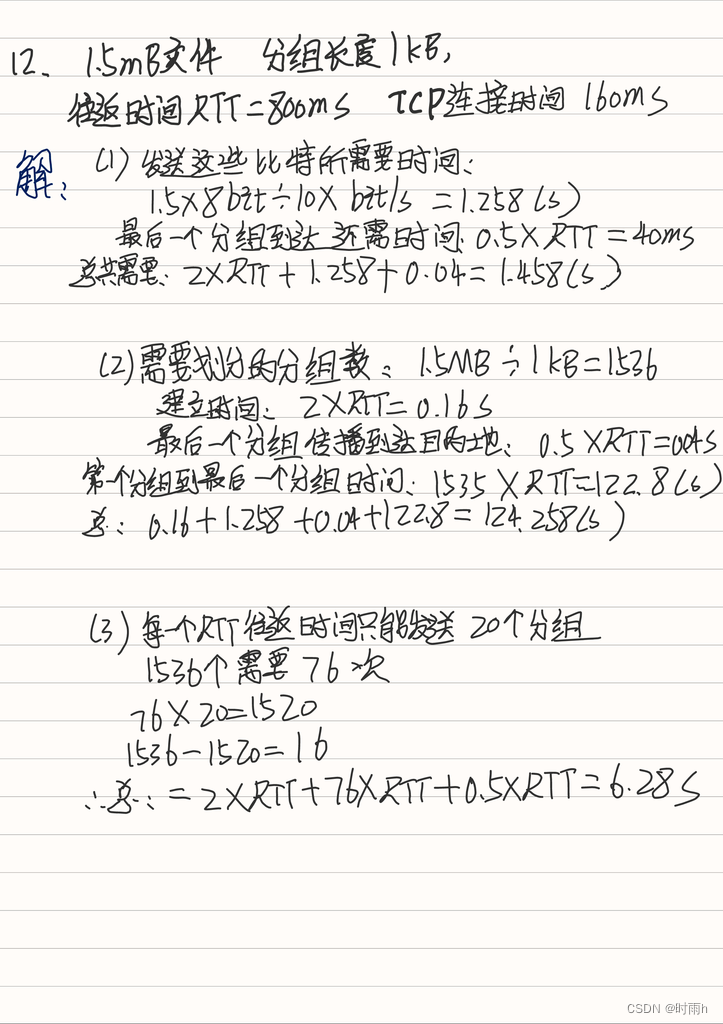 12、 1.5mB文件 分组长度1kB,
往返时间RTT=800ms TCP连接时间 160ms
解: (1) 发送这些比特所需要时间:
1.5×8bit÷10× bit/s =1.258(s)
最后一个分组到达 还需时间: 0.5×RTT=40ms
总共需要: 2×RTT+1.258+0.04=1.458(s)
(2)需要划分的分组数: 1.5MB÷1kB=1536
建立时间: 2×RTT=0.16s
最后一个分组传播到达目的地: 0.5×RTT=0.04s
第一个分组到最后一个分组时间: 1535×RTT=122.8(s)
总: 0.16+1.258+0.04+122.8=124.258(s)
(3) 每一个RTT往返时间只能发送 20个分组
1536个需要 76次
76×20=1520
1536-1520=16
∴总: =2×RTT+76×RTT+0.5×RTT=6.28s
CSDN @时雨h